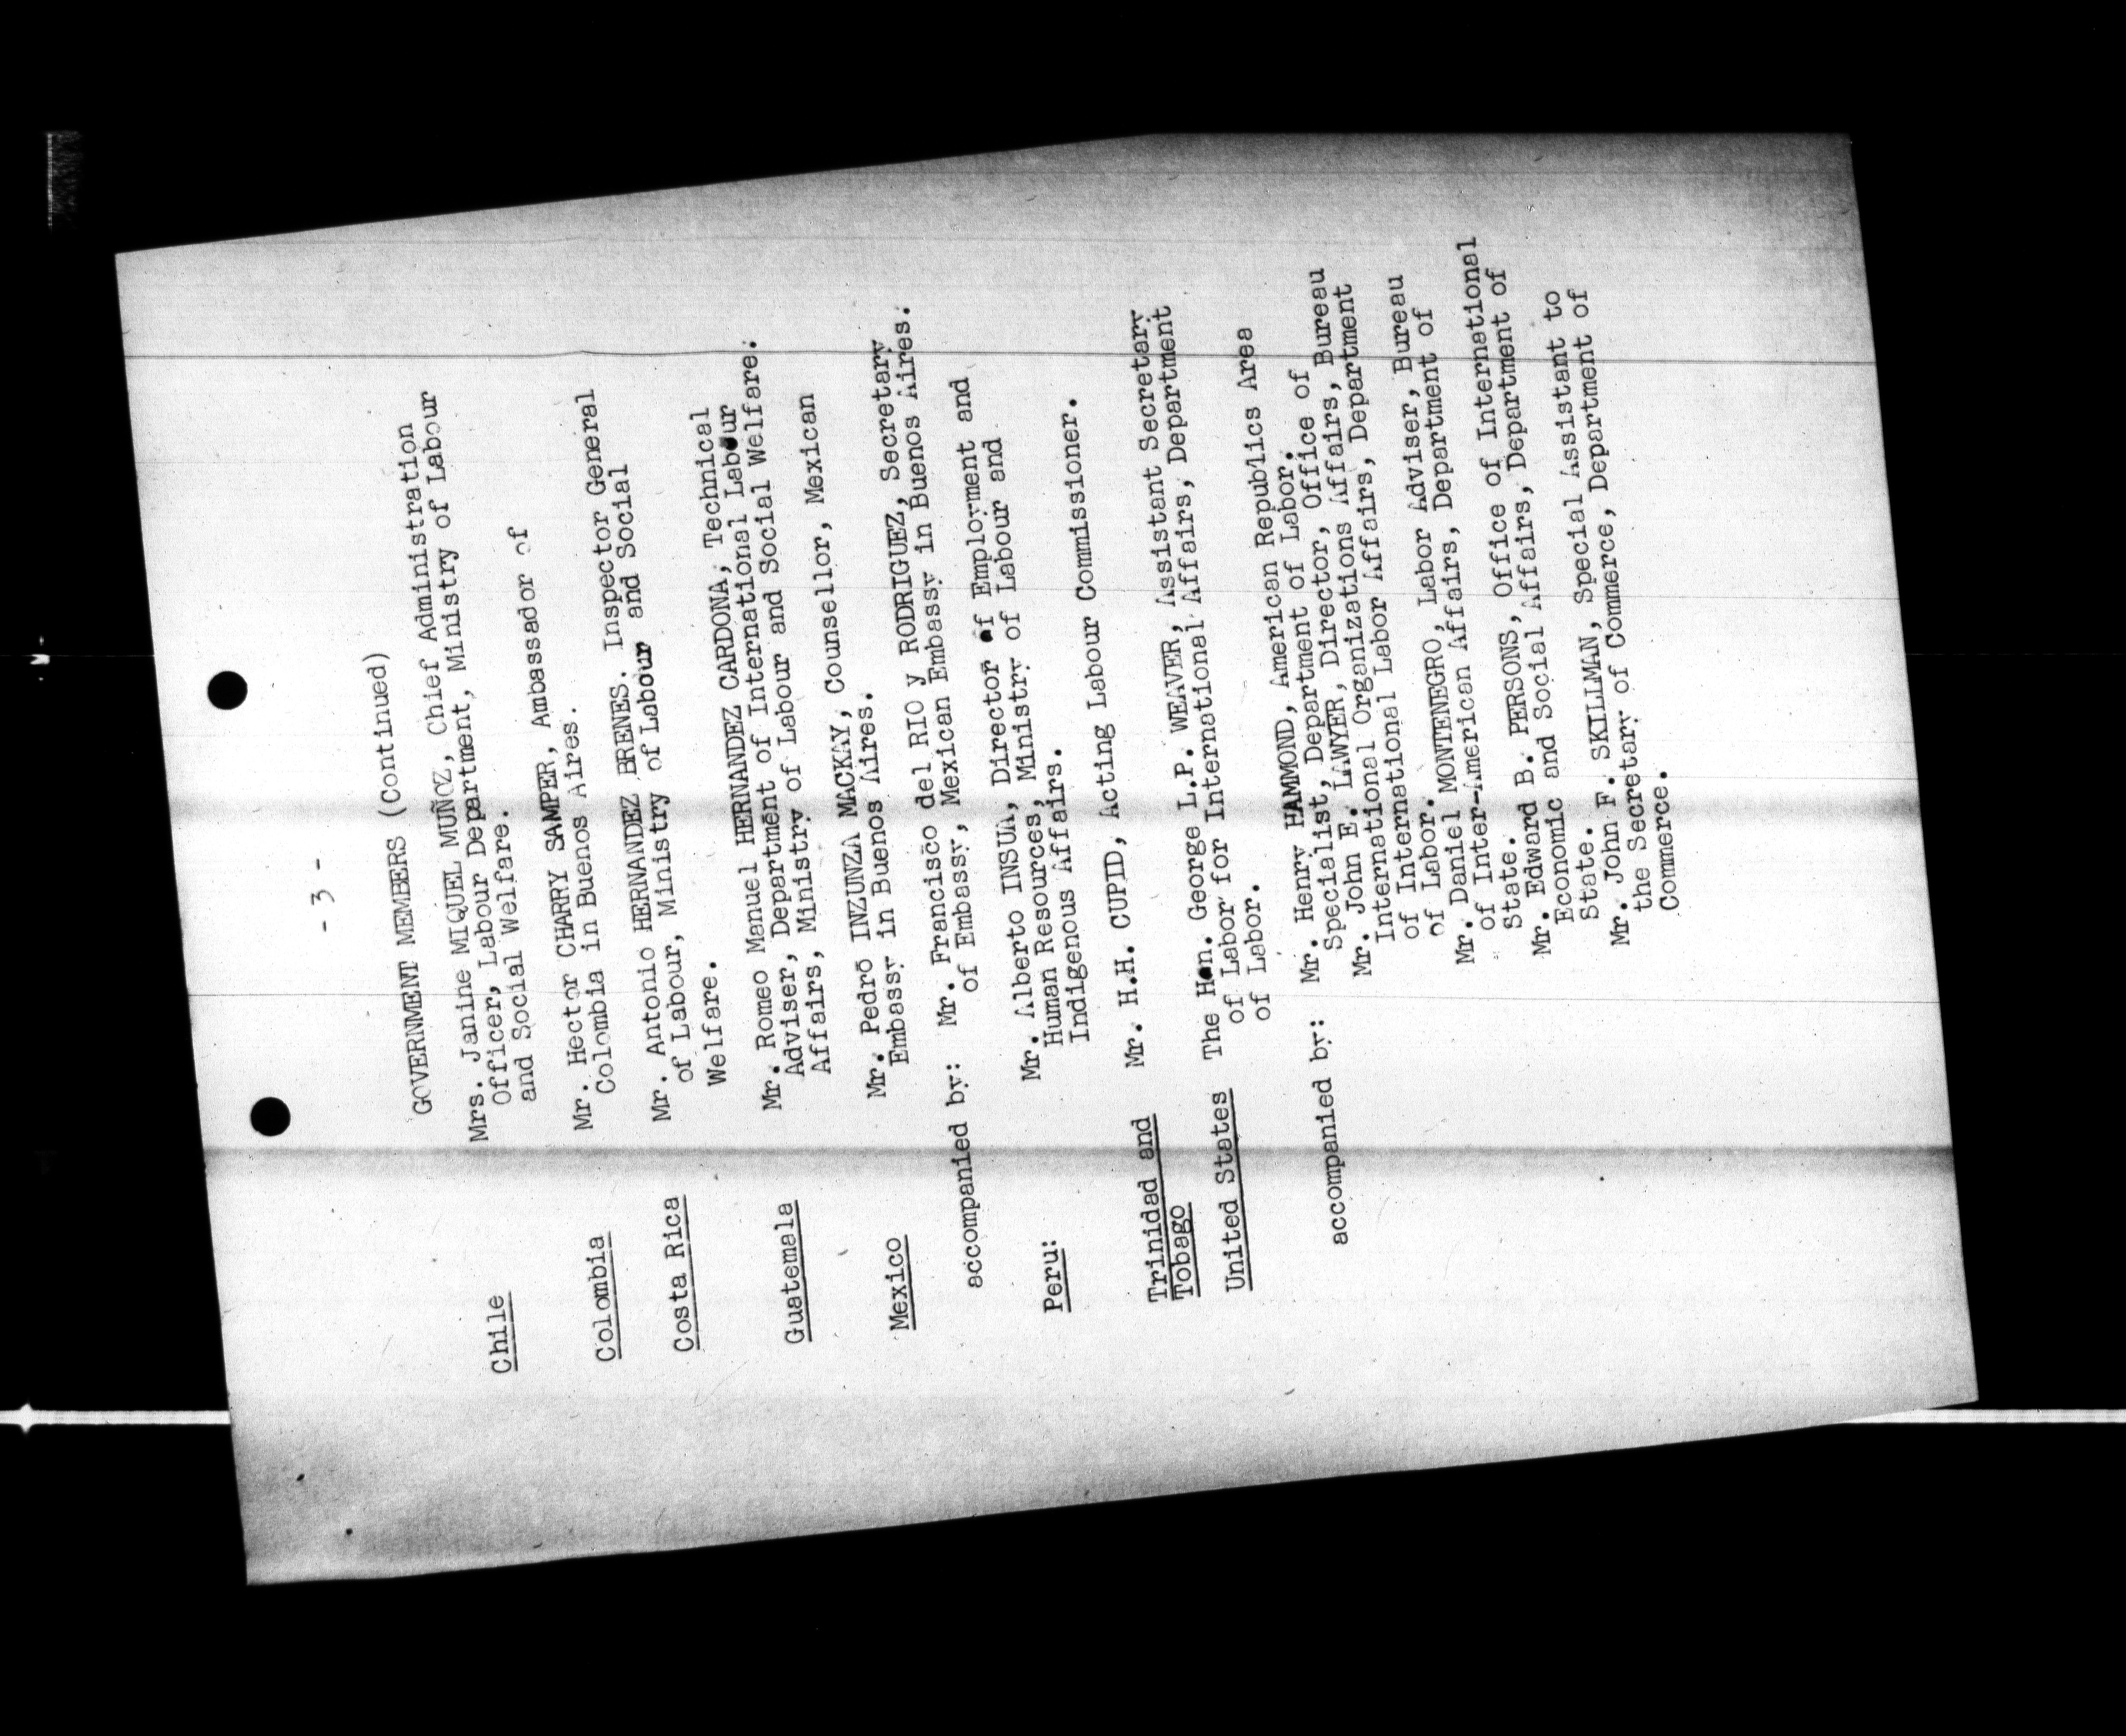 - 3 -
GOVERNMENT MEMBERS (Continued)
Chile Mrs. Janine MIQUEL MUÑOZ, Chief Administration
Officer, Labour Department, Ministry of Labour
and Social Welfare.
Colombia Mr. Hector CHARRY SAMPER, Ambassador of
Colombia in Buenos Aires.
Costa Rica Mr. Antonio HERNANDEZ BRENES. Inspector General
of Labour, Ministry of Labour and Social
Welfare.
Guatemala Mr. Romeo Manuel HERNANDEZ CARDONA, Technical
Adviser, Department of International Labour
Affairs, Ministry of Labour and Social Welfare.
Mexico Mr. Pedro INZUNZA MACKAY, Counsellor, Mexican
Embassy in Buenos Aires.
accompanied by: Mr. Francisco del RIO y RODRIGUEZ, Secretary
of Embassy, Mexican Embassy in Buenos Aires.
Peru: Mr. Alberto INSUA, Director of Employment and
Human Resources, Ministry of Labour and
Indigenous Affairs.
Trinidad and Mr. H.H. CUPID, Acting Labour Commissioner.
Tobago
United States The Hon. George L.P. WEAVER, Assistant Secretary
of Labor for International Affairs, Department
of Labor.
accompanied by: Mr. Henry HAMMOND, American Republics Area
Specialist, Department of Labor.
Mr. John E. LAWYER, Director, Office of
International Organizations Affairs, Bureau
of International Labor Affairs, Department
of Labor.
Mr. Daniel MONTENEGRO, Labor Adviser, Bureau
of Inter-American Affairs, Department of
State.
Mr. Edward B. PERSONS, Office of International
Economic and Social Affairs, Department of
State.
Mr. John F. SKILLMAN, Special Assistant to
the Secretary of Commerce, Department of
Commerce.